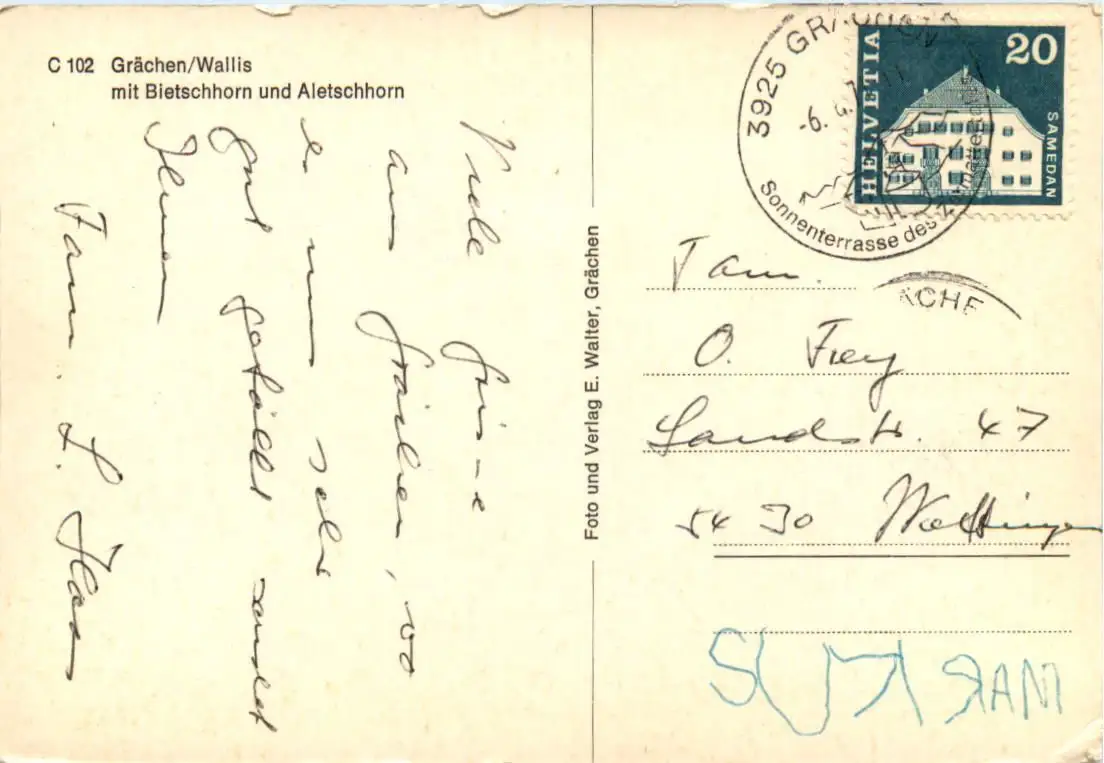 C 102 Grächen/Wallis
mit Bietschhorn und Aletschhorn
Viele Grüsse
aus Grächen, wo
es uns sehr
gut gefällt sendet
Ihnen
Fam. L. Haas
Foto und Verlag E. Walter, Grächen
3925 GRÄCHEN
-6. 4. 7
Sonnenterrasse des
HELVETIA
20
SAMEDAN
Fam.
O. Frey
Landstr. 47
5430 Wettingen
MARKUS